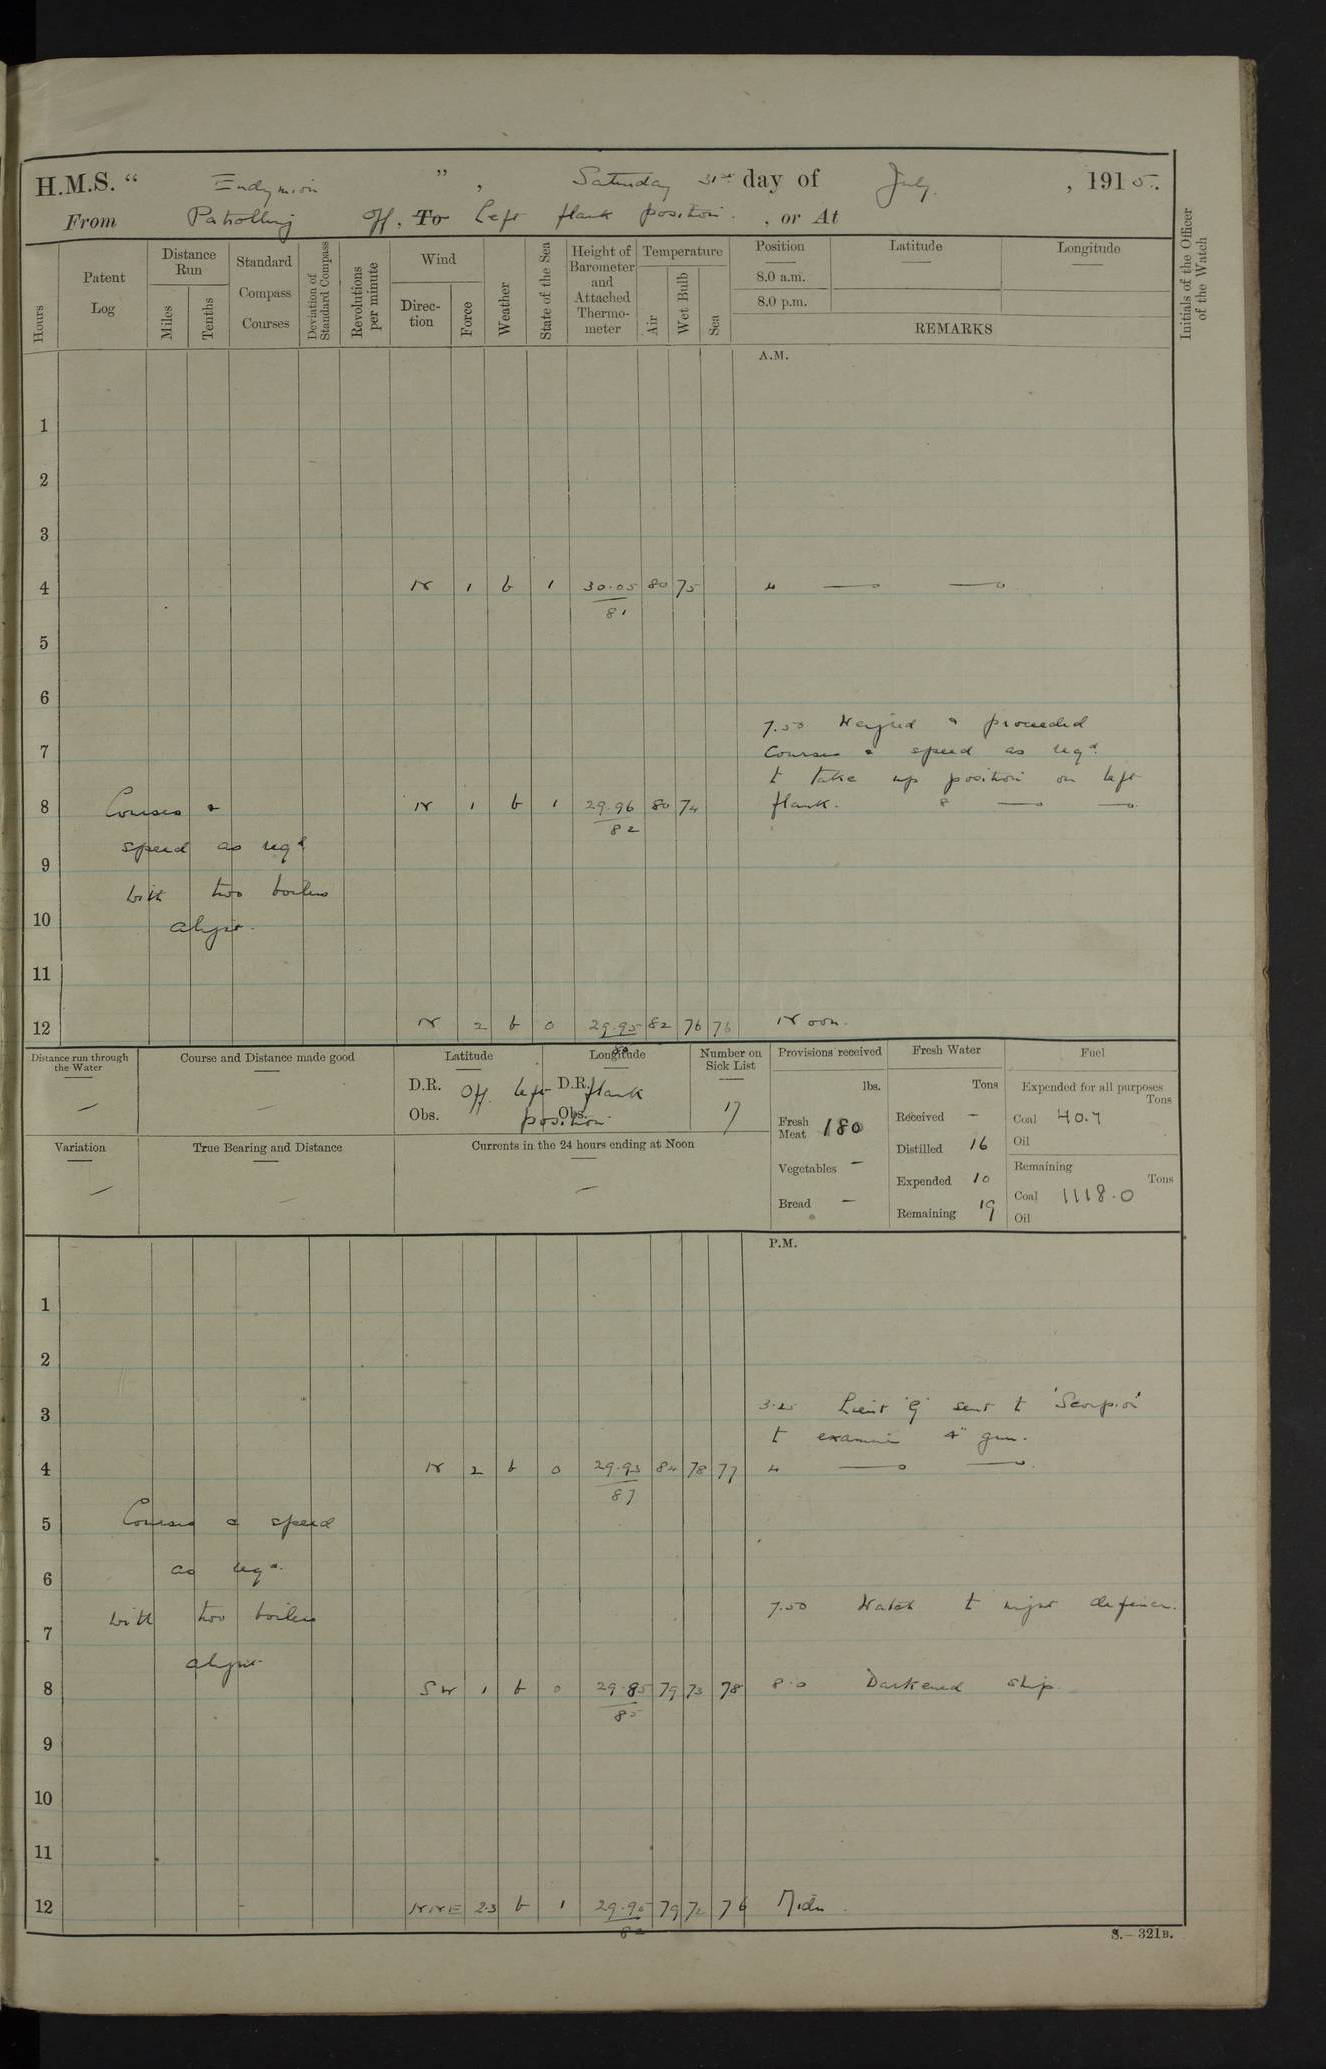 H.M.S. “ Endymion ” , Saturday 31st day of July , 1915.
From Patrolling off. To Left flank position. , or At
Hours
Patent Log
Distance Run
Miles
Tenths
Standard Compass Courses
Deviation of Standard Compass
Revolutions per minute
Wind
Direction
Force
Weather
State of the Sea
Height of Barometer and Attached Thermometer
Temperature
Air
Wet Bulb
Sea
Position
8.0 a.m.
8.0 p.m.
Latitude
Longitude
REMARKS
Initials of the Officer of the Watch
A.M.
1
2
3
4 N 1 b 1 30.05 80 75 4
81
5
6
7.50 Weighed & proceeded
7 Courses & speed as reqd
to take up position on left
8 Courses & N 1 b 1 29.96 80 74 flank. 8
82
speed as reqd
9
with two boilers
10
alight.
11
12 N 2 b 0 29.95 82 76 76 Noon.
Distance run through the Water
Course and Distance made good
Latitude
D.R.
Obs.
Longitude
D.R.
Obs.
Off left flank
position
Number on Sick List
17
Provisions received
lbs.
Fresh Meat 180
Vegetables –
Bread –
Fresh Water
Tons
Received –
Distilled 16
Expended 10
Remaining 19
Fuel
Expended for all purposes
Tons
Coal 40.7
Oil
Remaining
Tons
Coal 1118.0
Oil
Variation
True Bearing and Distance
Currents in the 24 hours ending at Noon
P.M.
1
2
3 3.25 Lieut 'G' sent to 'Scorpion'
to examine 4" gun.
4 N 2 b 0 29.93 84 78 77 4
87
5 Courses & speed
6 as reqd.
with two boilers 7.50 Watch to night defence.
7
alight
8 SW 1 b 0 29.85 79 73 78 8.0 Darkened ship.
85
9
10
11
12 NNE 2.3 b 1 29.90 79 72 76 Midn.
82
S.—321B.